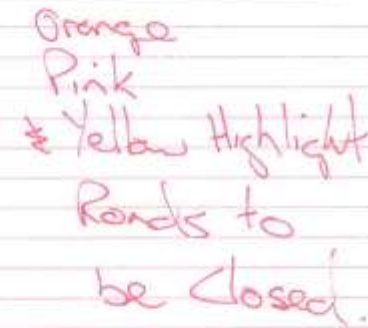 Orange
Pink
& Yellow Highlight
Roads to
be Closed.